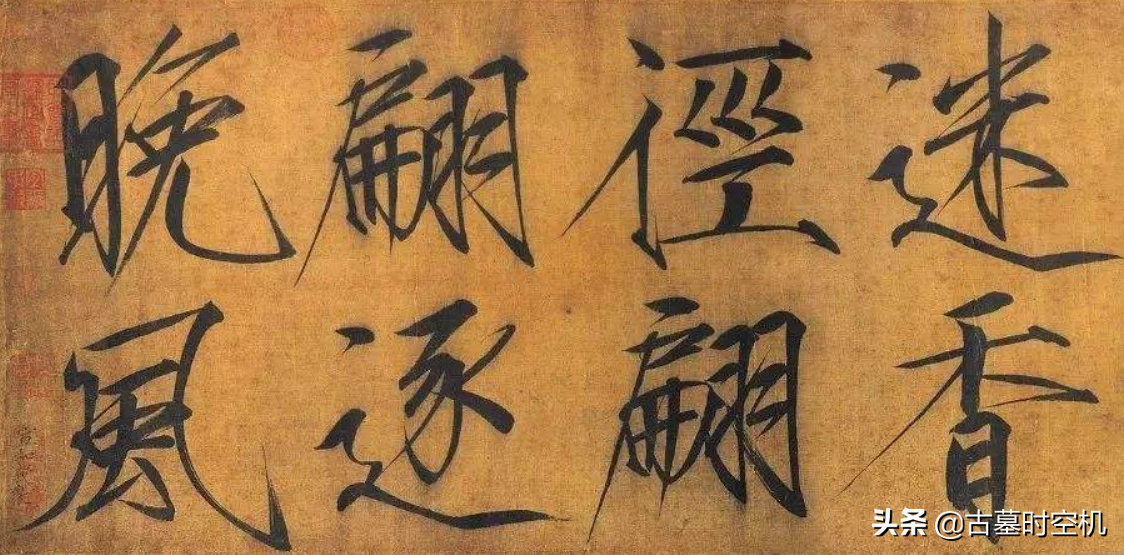 迷香
徑翩
翩逐
晚風
头条 @古墓时空机